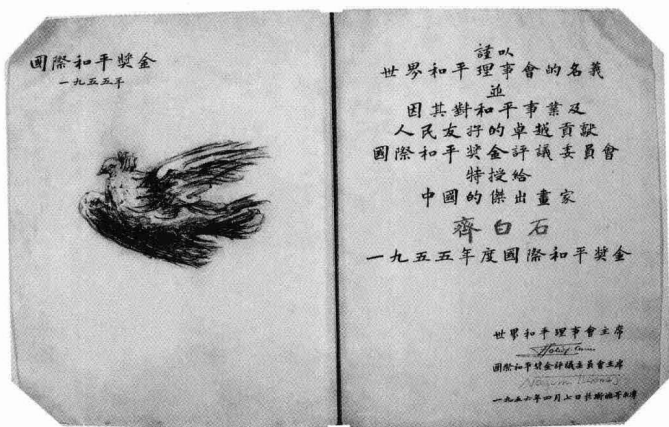 國際和平獎金
一九五五年
謹以
世界和平理事會的名義
並
因其對和平事業及
人民友好的卓越貢獻
國際和平獎金評議委員會
特授給
中國的傑出畫家
齊白石
一九五五年度國際和平獎金
世界和平理事會主席
國際和平獎金評議委員會主席
一九五六年四月七日於斯德哥爾摩